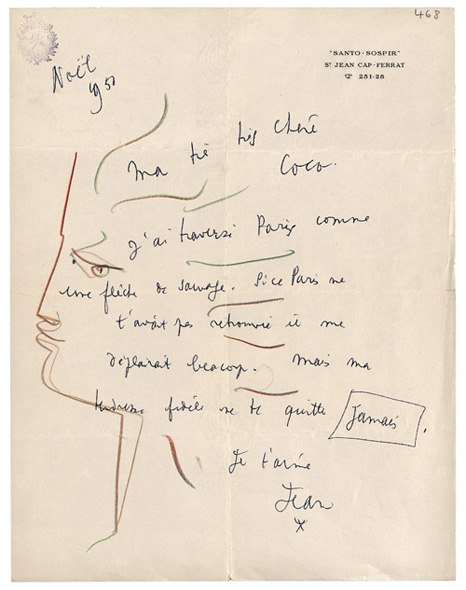 468
"SANTO-SOSPIR"
ST JEAN CAP-FERRAT
☎ 251-28
Noël
1950
Ma très très chère
Coco.
J'ai traversé Paris comme
une flèche de sauvage. Si ce Paris ne
t'avait pas retrouvée il me
déplairait beaucoup. Mais ma
tendresse fidèle ne te quitte Jamais.
Je t'aime
Jean